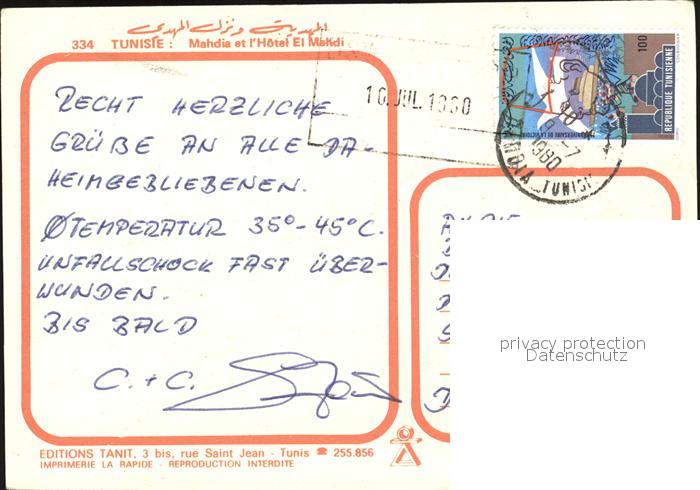 المهدية ونزل المهدي
334 TUNISIE : Mahdia et l'Hôtel El Mahdi
10. JUL. 1980
100
REPUBLIQUE TUNISIENNE
ANNIVERSAIRE DE LA VICTOIRE
1980
TUNISIE
RECHT HERZLICHE
GRÜßE AN ALLE DA-
HEIMGEBLIEBENEN.
ØTEMPERATUR 35°-45°C.
UNFALLSCHOCK FAST ÜBER-
WUNDEN.
BIS BALD
C. + C.
AN DIE
privacy protection
Datenschutz
EDITIONS TANIT, 3 bis, rue Saint Jean - Tunis ☎ 255.856
IMPRIMERIE LA RAPIDE - REPRODUCTION INTERDITE